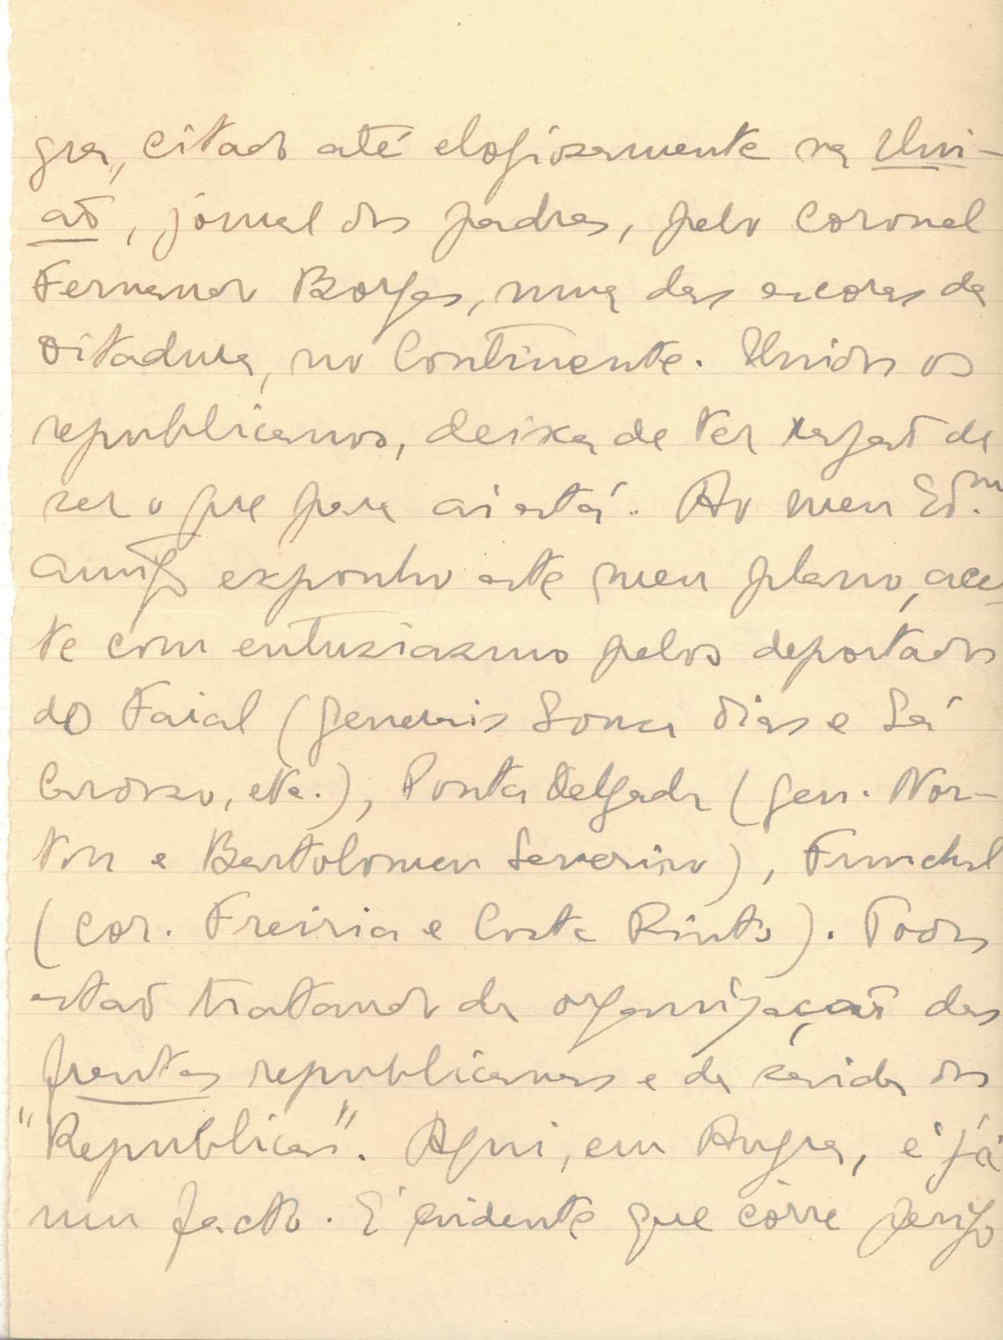 gra, citado até elogiosamente na Uni-
ão, jornal dos padres, pelo Coronel
Fernando Borges, uma das escoras da
Ditadura, no Continente. Unidos os
republicanos, deixa de ter razão de
ser o que para aí está. Ao meu Ed.mo
amigo exponho este meu plano, acei-
te com entusiasmo pelos deportados
do Faial (generais Sousa Dias e Sá
Cardoso, etc.), Ponta Delgada (gen. Nor-
ton e Bartolomeu Severino), Funchal
(cor. Freiria e Costa Pinto). Todos
estão tratando da organização das
frentes republicanas e da saída das
"Republicas". Aqui, em Angra, é já
um facto. É evidente que côrre perigo